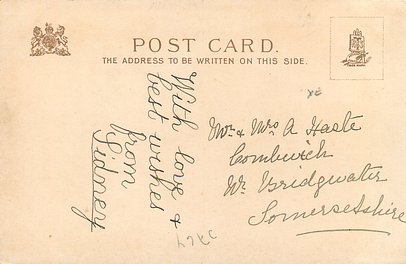 POST CARD.
THE ADDRESS TO BE WRITTEN ON THIS SIDE.
With love &
best wishes
from
Sidney
Mr & Mrs A Haste
Combwich
Nr. Bridgwater
Somersetshire